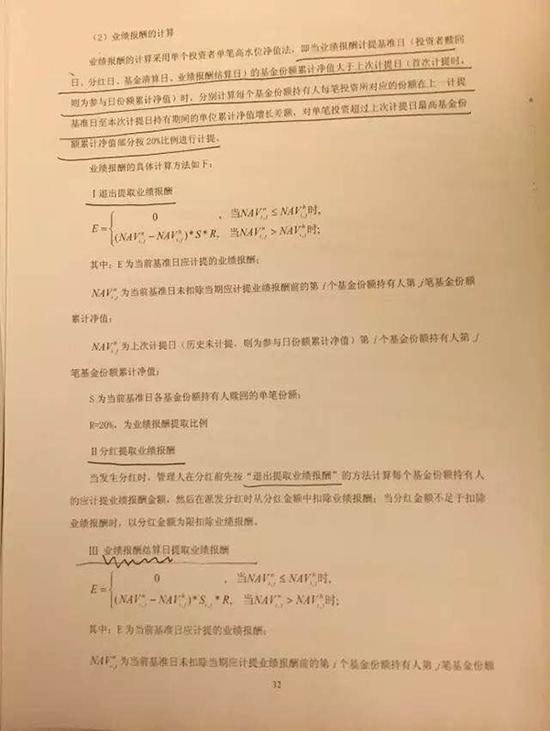 （2）业绩报酬的计算
业绩报酬的计算采用单个投资者单笔高水位净值法，即当业绩报酬计提基准日（投资者赎回
日、分红日、基金清算日、业绩报酬结算日）的基金份额累计净值大于上次计提日（首次计提时，
则为参与日份额累计净值）时，分别计算每个基金份额持有人每笔投资所对应的份额在上一计提
基准日至本次计提日持有期间的单位累计净值增长差额，对单笔投资超过上次计提日最高基金份
额累计净值部分按20%比例进行计提。
业绩报酬的具体计算方法如下：
Ⅰ退出提取业绩报酬
E = { 0 ，当NAVⁿᵢ,ⱼ ≤ NAVʰᵢ,ⱼ时，
(NAVⁿᵢ,ⱼ − NAVʰᵢ,ⱼ)*S*R，当NAVⁿᵢ,ⱼ > NAVʰᵢ,ⱼ时；
其中：E 为当前基准日应计提的业绩报酬；
NAVⁿᵢ,ⱼ 为当前基准日未扣除当期应计提业绩报酬前的第 i 个基金份额持有人第 j 笔基金份额
累计净值；
NAVʰᵢ,ⱼ 为上次计提日（历史未计提，则为参与日份额累计净值）第 i 个基金份额持有人第 j
笔基金份额累计净值；
S 为当前基准日各基金份额持有人赎回的单笔份额；
R=20%，为业绩报酬提取比例
Ⅱ分红提取业绩报酬
当发生分红时，管理人在分红前先按“退出提取业绩报酬”的方法计算每个基金份额持有人
的应计提业绩报酬金额，然后在派发分红时从分红金额中扣除业绩报酬；当分红金额不足于扣除
业绩报酬时，以分红金额为限扣除业绩报酬。
Ⅲ 业绩报酬结算日提取业绩报酬
E = { 0 ，当NAVⁿᵢ,ⱼ ≤ NAVʰᵢ,ⱼ时，
(NAVⁿᵢ,ⱼ − NAVʰᵢ,ⱼ)*Sᵢ,ⱼ*R，当NAVⁿᵢ,ⱼ > NAVʰᵢ,ⱼ时；
其中：E 为当前基准日应计提的业绩报酬；
NAVⁿᵢ,ⱼ 为当前基准日未扣除当期应计提业绩报酬前的第 i 个基金份额持有人第 j 笔基金份额
32